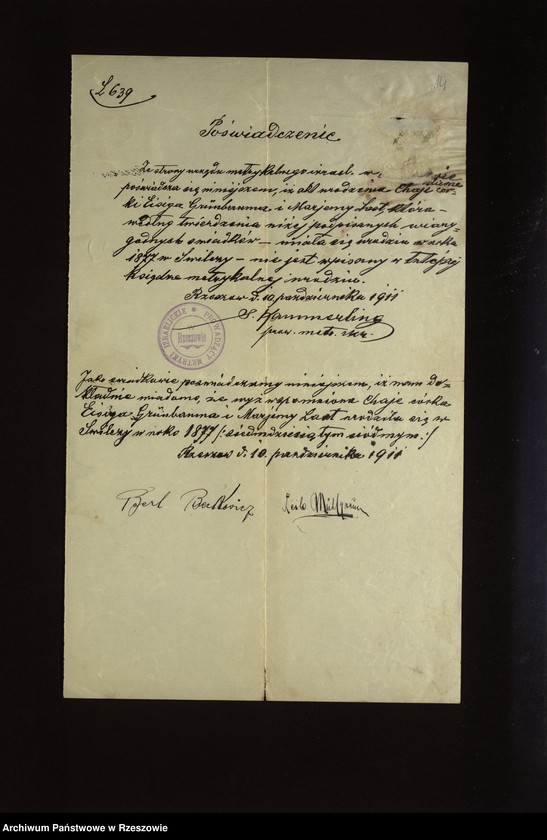 L 639
14
Poświadczenie
Ze strony urzędu metrykalnego izrael. w
poświadcza się niniejszem, iż akt urodzenia Chaje cór-
ki Eisiga Grünbauma i Marjemy Last, która –
według twierdzenia niżej podpisanych wiary-
godnych świadków – miała się urodzić w roku
1877 w Świlczy – nie jest wpisany w tutejszej
księdze metrykalnej urodzin.
Rzeszow d. 10 października 1911
S. Kammerling
prow. metr. izr.
PROWADZĄCY METRYKI IZRAELICKIE
w Rzeszowie
Jako świadkowie poświadczamy niniejszem, iż nam do-
kładnie wiadomo, że wyż wspomniana Chaje córka
Eisiga Grünbauma i Marjemy Last urodziła się w
Świlczy w roku 1877 /: siedmdziesiątym siódmym :/
Rzeszow d. 10. października 1911
Berl Berkowicz
Leib
Archiwum Państwowe w Rzeszowie